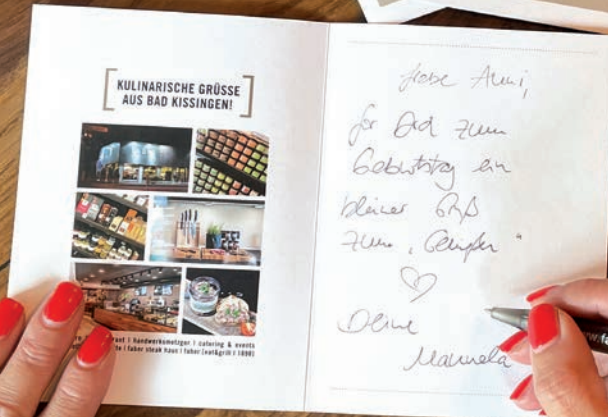 KULINARISCHE GRÜSSE
AUS BAD KISSINGEN!
handwerksmetzger | catering & events
faber steak haus | faber [eat&grill | 1890]
Liebe Anni,
für Dich zum
Geburtstag ein
kleiner Gruß
zum „Genießen“
Deine
Manuela